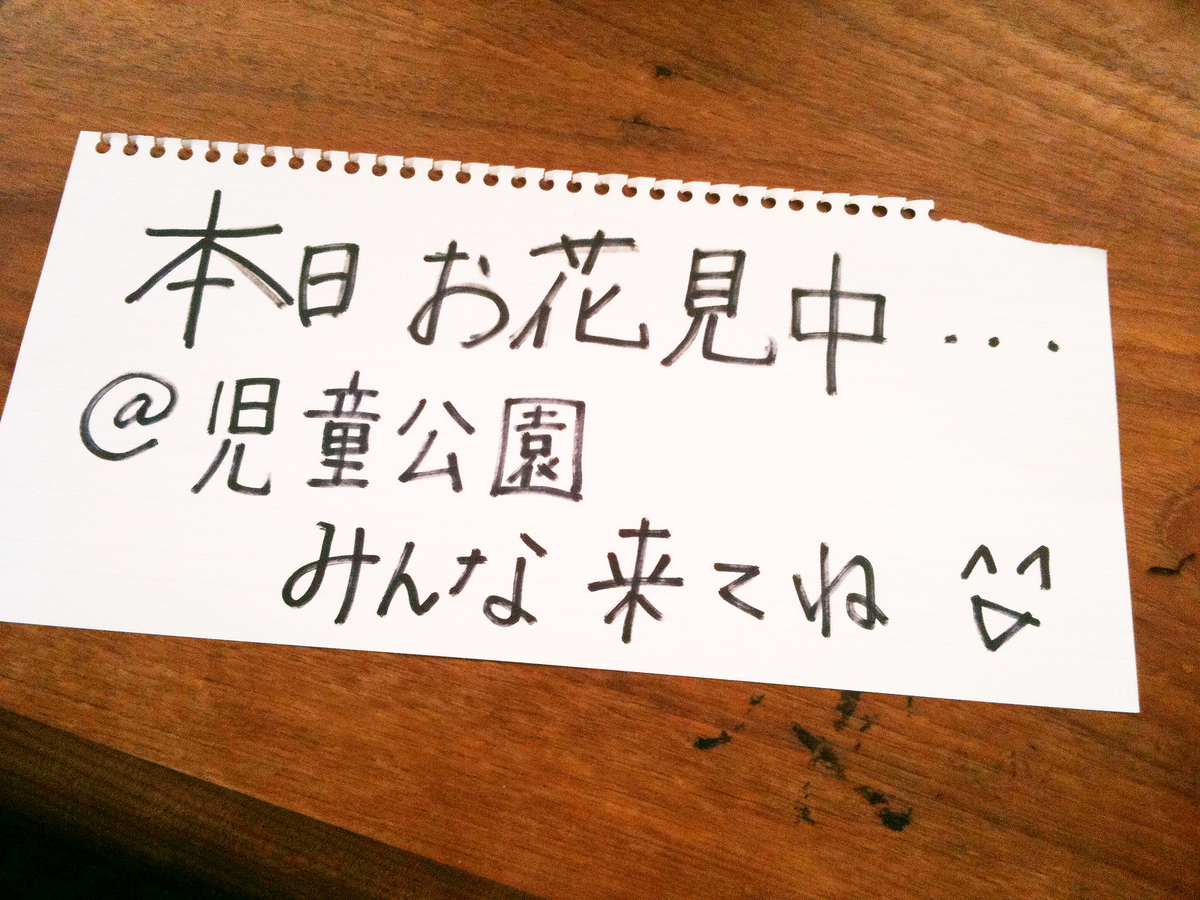 本日お花見中...
@児童公園
みんな来てね ^^